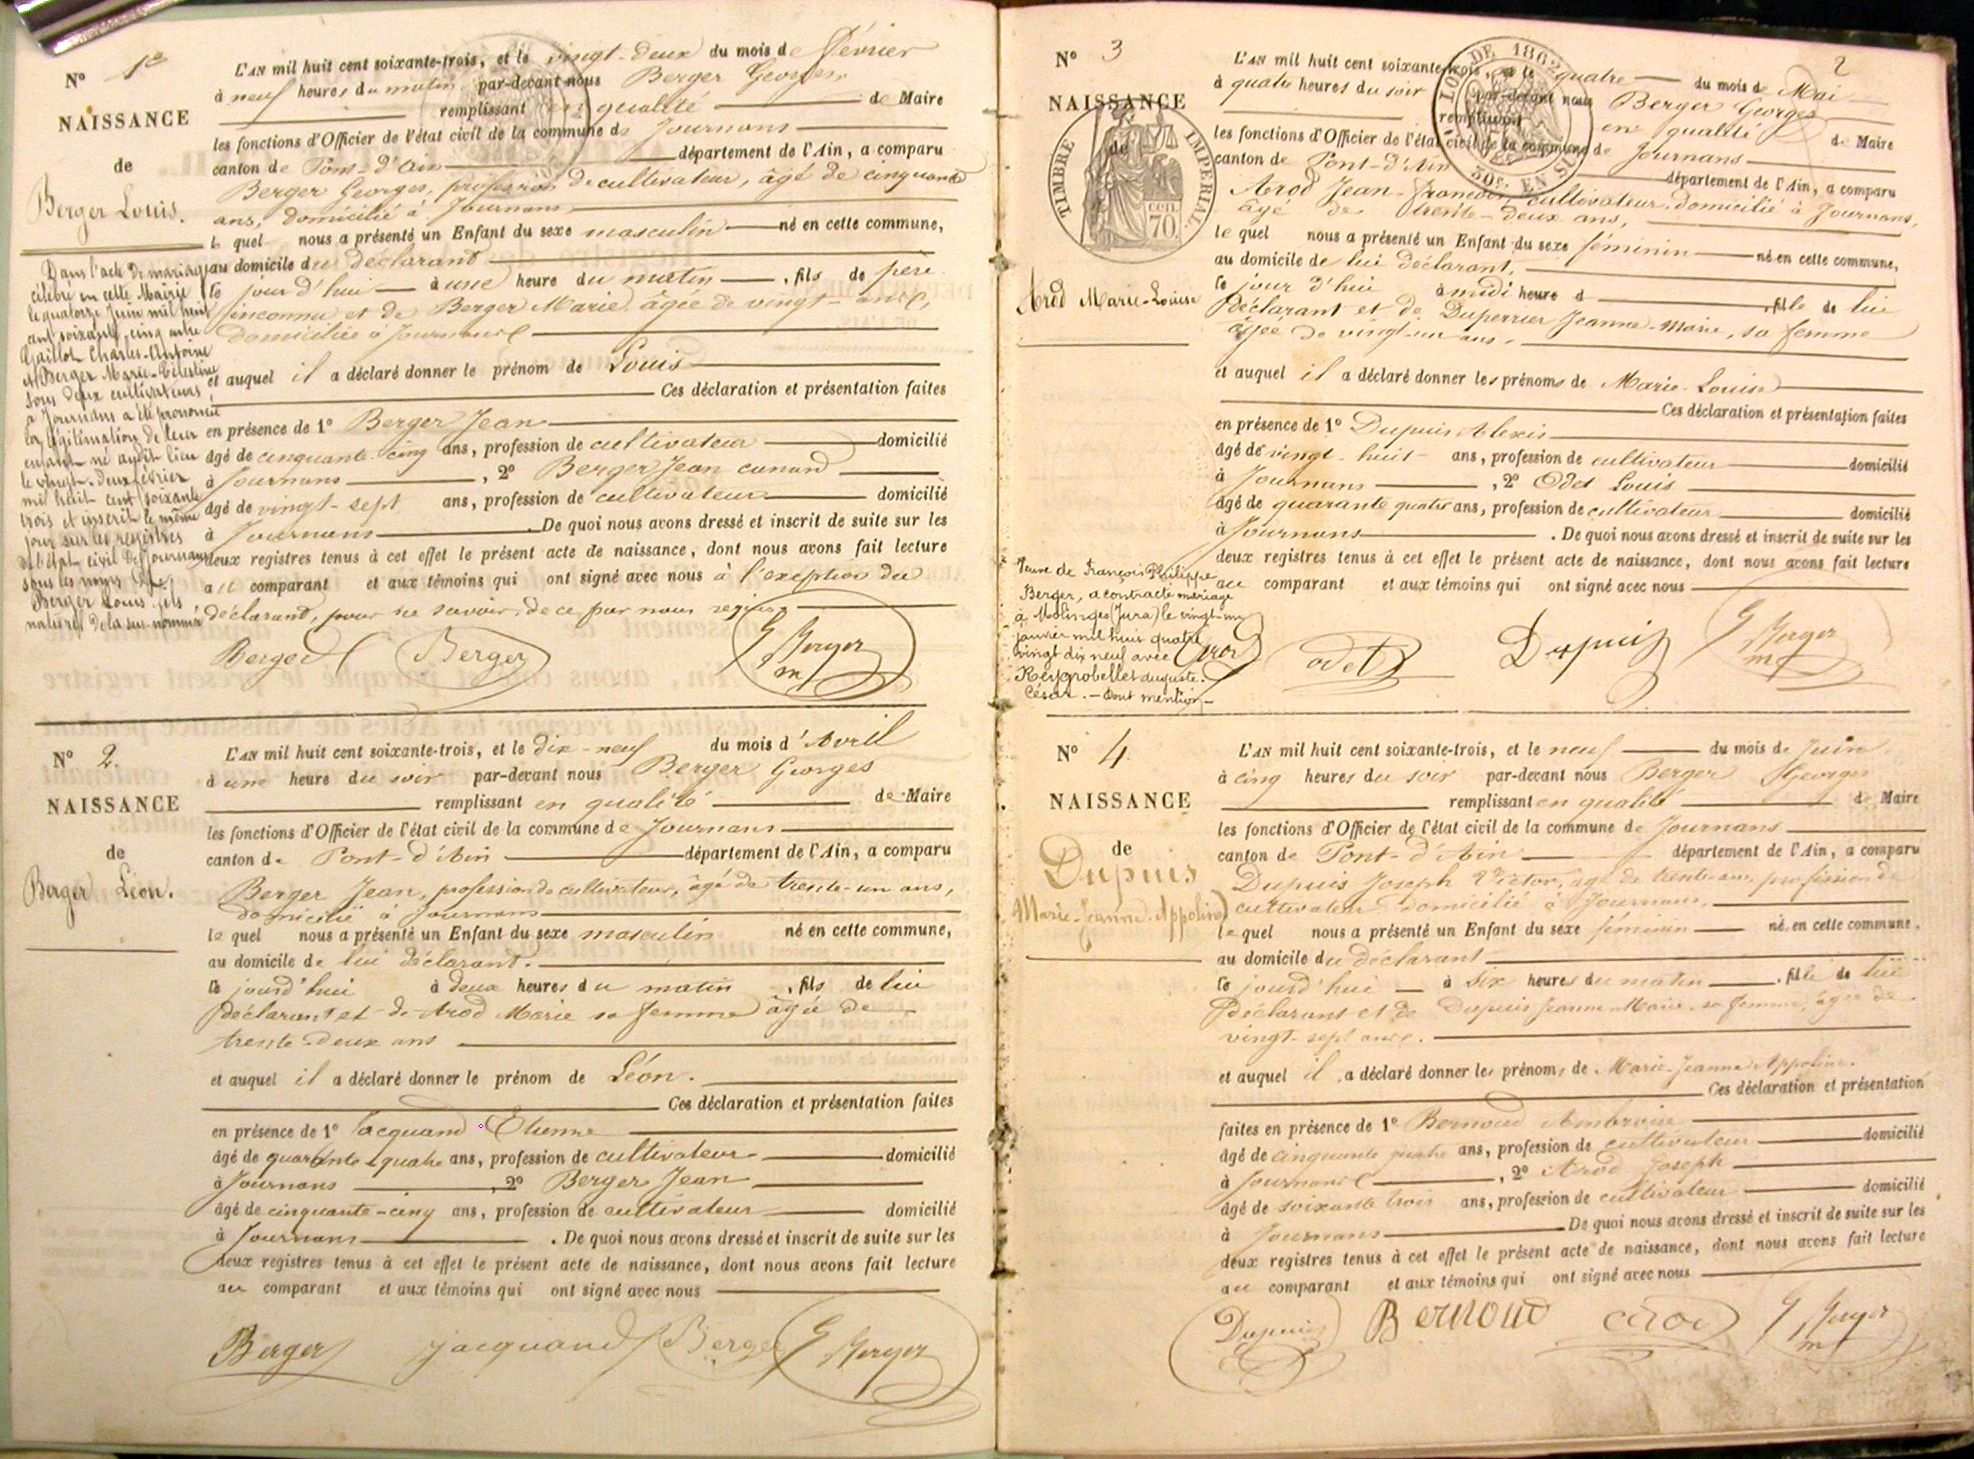 N° 1er
NAISSANCE
de
Berger Louis.
L'AN mil huit cent soixante-trois, et le vingt-deux du mois de Février
à neuf heures du matin par-devant nous Berger Georges
remplissant en qualité de Maire
les fonctions d'Officier de l'état civil de la commune de Journans
canton de Pont-d'Ain département de l'Ain, a comparu
Berger Georges, profession de cultivateur, âgé de cinquante
ans, domicilié à Journans
le quel nous a présenté un Enfant du sexe masculin né en cette commune,
au domicile du déclarant
le jour d'hui à une heure du matin, fils de père
inconnu et de Berger Marie âgée de vingt-ans,
domiciliée à Journans
et auquel il a déclaré donner le prénom de Louis
Ces déclaration et présentation faites
en présence de 1° Berger Jean
âgé de cinquante-cinq ans, profession de cultivateur domicilié
à Journans, 2° Berger Jean
âgé de vingt-sept ans, profession de cultivateur domicilié
à Journans. De quoi nous avons dressé et inscrit de suite sur les
deux registres tenus à cet effet le présent acte de naissance, dont nous avons fait lecture
au comparant et aux témoins qui ont signé avec nous à l'exeption du
déclarant, pour ne savoir, de ce par nous requis
Berger Berger G Berger
m
Dans l'acte de mariage
célébré en cette Mairie
le quatorze Juin mil huit
cent soixante cinq entre
Gaillot Charles-Antoine
et Berger Marie-Célestine
tous deux cultivateurs
à Journans a été prononcé
la légitimation de leur
enfant né audit lieu
le vingt-deux février
mil huit cent soixante
trois et inscrit le même
jour sur les registres
de l'état civil de Journans
sous les noms de
Berger Louis fils
naturel de la sus-nommée
N° 2.
NAISSANCE
de
Berger Léon.
L'AN mil huit cent soixante-trois, et le dix-neuf du mois d'Avril
à une heure du soir par-devant nous Berger Georges
remplissant en qualité de Maire
les fonctions d'Officier de l'état civil de la commune de Journans
canton de Pont-d'Ain département de l'Ain, a comparu
Berger Jean, profession de cultivateur, âgé de trente-un ans,
domicilié à Journans
le quel nous a présenté un Enfant du sexe masculin né en cette commune,
au domicile de lui déclarant.
le jourd'hui à deux heures du matin, fils de lui
déclarant et de Arod Marie sa femme âgée de
trente-deux ans
et auquel il a déclaré donner le prénom de Léon.
Ces déclaration et présentation faites
en présence de 1° Jacquand Etienne
âgé de quarante-quatre ans, profession de cultivateur domicilié
à Journans, 2° Berger Jean
âgé de cinquante-cinq ans, profession de cultivateur domicilié
à Journans. De quoi nous avons dressé et inscrit de suite sur les
deux registres tenus à cet effet le présent acte de naissance, dont nous avons fait lecture
au comparant et aux témoins qui ont signé avec nous
Berger jacquand Berger G Berger
2
N° 3
NAISSANCE
de
Arod Marie-Louise
TIMBRE IMPERIAL
70
10E DE 1862
50c. EN SUS
L'AN mil huit cent soixante-trois, et le quatre du mois de Mai
à quatre heures du soir par-devant nous Berger Georges
remplissant en qualité de Maire
les fonctions d'Officier de l'état civil de la commune de Journans
canton de Pont-d'Ain département de l'Ain, a comparu
Arod Jean-françois, cultivateur, domicilié à Journans,
âgé de trente-deux ans,
le quel nous a présenté un Enfant du sexe féminin né en cette commune,
au domicile de lui déclarant,
le jour d'hui à midi heure d, fille de lui
déclarant et de Duperrier Jeanne-Marie, sa femme
âgée de vingt-un ans.
et auquel il a déclaré donner les prénoms de Marie-Louise
Ces déclaration et présentation faites
en présence de 1° Dupuis Alexis
âgé de vingt-huit ans, profession de cultivateur domicilié
à Journans, 2° Odet Louis
âgé de quarante quatre ans, profession de cultivateur domicilié
à Journans. De quoi nous avons dressé et inscrit de suite sur les
deux registres tenus à cet effet le présent acte de naissance, dont nous avons fait lecture
au comparant et aux témoins qui ont signé avec nous
arod odet Dupuis G Berger
m
Veuve de François Philippe
Berger, a contracté mariage
à Molinges (Jura) le vingt-un
janvier mil huit quatre
vingt dix neuf avec
Reygrobellet Auguste
César. - Dont mention -
N° 4
NAISSANCE
de
Dupuis
Marie-Jeanne-Appoline
L'AN mil huit cent soixante-trois, et le neuf du mois de Juin
à cinq heures du soir par-devant nous Berger Georges
remplissant en qualité de Maire
les fonctions d'Officier de l'état civil de la commune de Journans
canton de Pont-d'Ain département de l'Ain, a comparu
Dupuis Joseph Victor, âgé de trente ans, profession de
cultivateur domicilié à Journans,
le quel nous a présenté un Enfant du sexe féminin né en cette commune,
au domicile du déclarant
le jourd'hui à six heures du matin, fille de lui
déclarant et de Dupuis Jeanne-Marie, sa femme, âgée de
vingt-sept ans.
et auquel il a déclaré donner les prénoms de Marie-Jeanne Appoline.
Ces déclaration et présentation
faites en présence de 1° Bernoud Ambroise
âgé de cinquante quatre ans, profession de cultivateur domicilié
à Journans, 2° Arod Joseph
âgé de soixante trois ans, profession de cultivateur domicilié
à Journans. De quoi nous avons dressé et inscrit de suite sur les
deux registres tenus à cet effet le présent acte de naissance, dont nous avons fait lecture
au comparant et aux témoins qui ont signé avec nous
Dupuis Bernoud arod G Berger
m